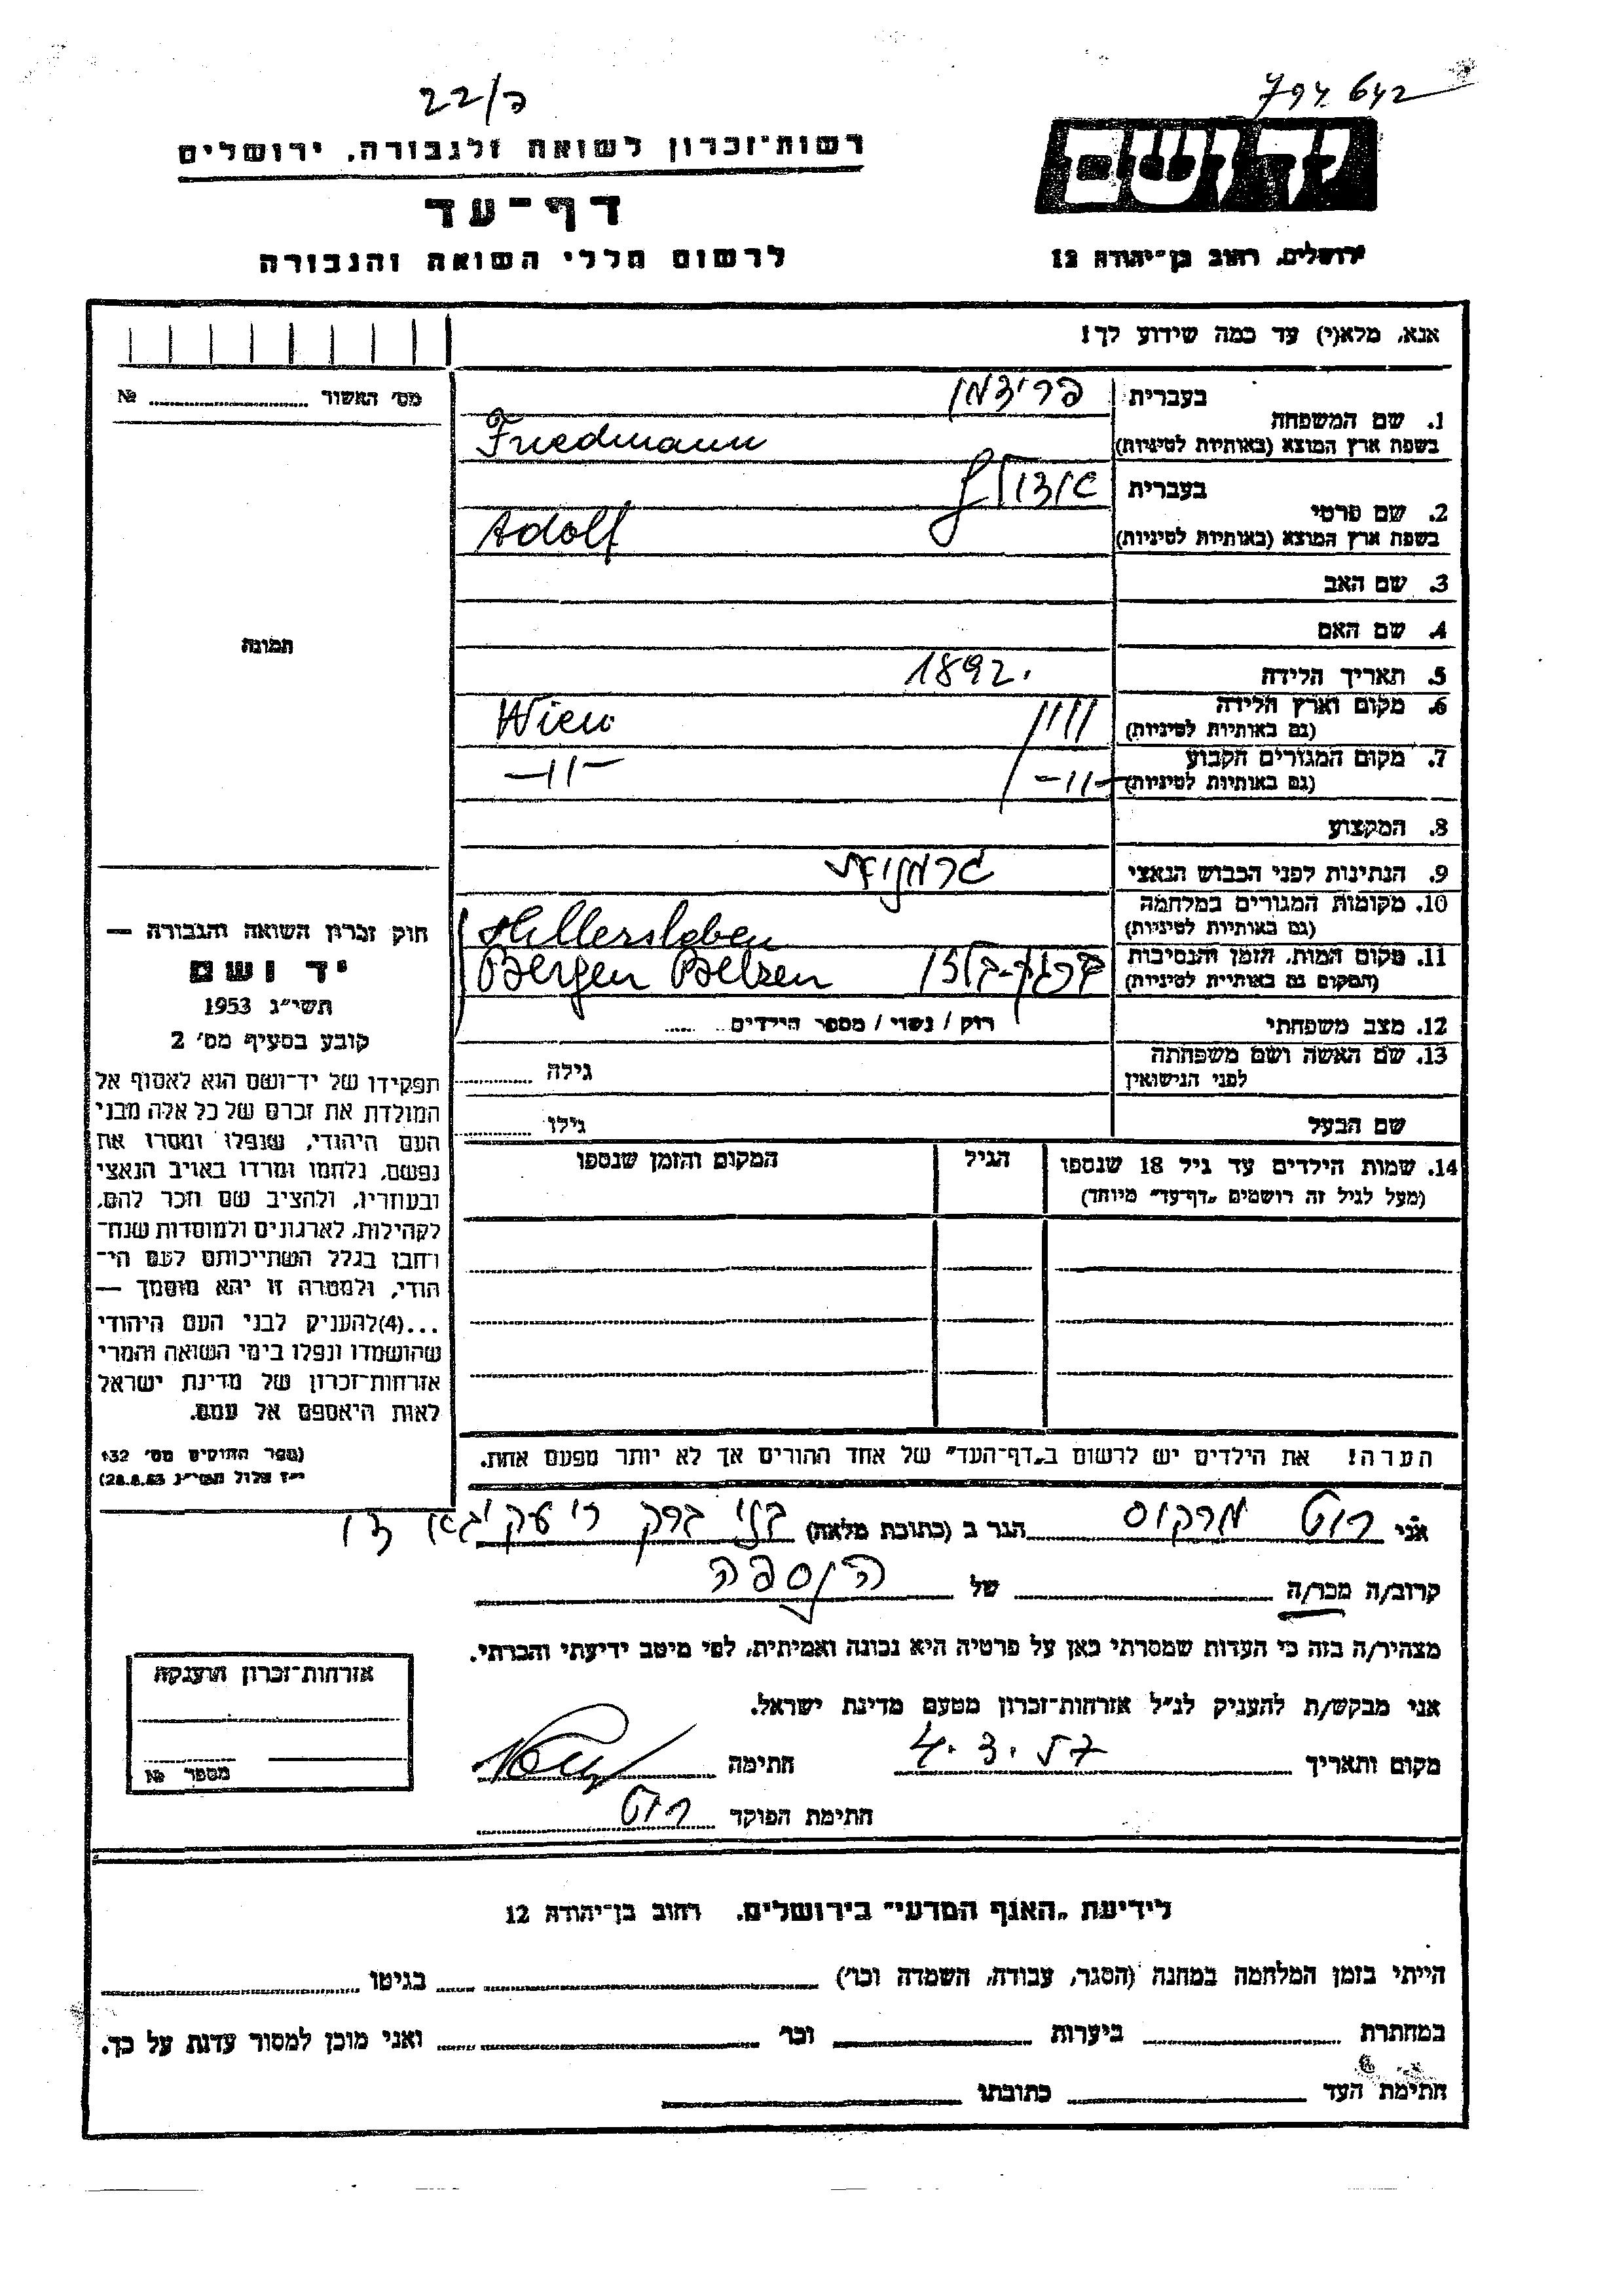 22/ה
794642
רשות־זכרון לשואה ולגבורה, ירושלים
יד ושם
דף־עד
לרשום חללי השואה והגבורה
ירושלים, רחוב בן־יהודה 12
אנא, מלא(י) עד כמה שידוע לך!
מס׳ האשור № 
תמונה
בעברית פרידמן
1. שם המשפחה
בשפת ארץ המוצא (באותיות לטיניות) Friedmann
בעברית אדולף
2. שם פרטי
בשפת ארץ המוצא (באותיות לטיניות) Adolf
3. שם האב
4. שם האם
5. תאריך הלידה 1892.
6. מקום וארץ הלידה
(גם באותיות לטיניות) וין Wien
7. מקום המגורים הקבוע
(גם באותיות לטיניות) -״- -״-
8. המקצוע
9. הנתינות לפני הכבוש הנאצי גרמנית
10. מקומות המגורים במלחמה
(גם באותיות לטיניות) Hillersleben
11. מקום המות, הזמן והנסיבות
(המקום גם באותיות לטיניות) ברגן-בלזן Bergen Belsen
12. מצב משפחתי רוק / נשוי / מספר הילדים
13. שם האשה ושם משפחתה
לפני הנישואין גילה
שם הבעל גילו
14. שמות הילדים עד גיל 18 שנספו הגיל המקום והזמן שנספו
(מעל לגיל זה רושמים „דף־עד״ מיוחד)
הערה! את הילדים יש לרשום ב„דף־העד״ של אחד ההורים אך לא יותר מפעם אחת.
חוק זכרון השואה והגבורה —
יד ושם
תשי״ג 1953
קובע בסעיף מס׳ 2
תפקידו של יד־ושם הוא לאסוף אל
המולדת את זכרם של כל אלה מבני
העם היהודי, שנפלו ומסרו את
נפשם, נלחמו ומרדו באויב הנאצי
ובעוזריו, ולהציב שם וזכר להם,
לקהילות, לארגונים ולמוסדות שנח־
רבו בגלל השתייכותם לעם הי־
הודי, ולמטרה זו יהא מוסמך —
...(4)להעניק לבני העם היהודי
שהושמדו ונפלו בימי השואה והמרי
אזרחות־זכרון של מדינת ישראל
לאות היאספם אל עמם.
(ספר החוקים מס׳ 132
י״ז אלול תשי״ג 28.8.53)
אני רוט מרקוס הגר ב (כתובת מלאה) בני ברק ר׳ עקיבא
קרוב/ה מכר/ה של הנספה
מצהיר/ה בזה כי העדות שמסרתי כאן על פרטיה היא נכונה ואמיתית, לפי מיטב ידיעתי והכרתי.
אני מבקש/ת להעניק לנ״ל אזרחות־זכרון מטעם מדינת ישראל.
מקום ותאריך 4.3.57 חתימה
חתימת הפוקד רוט
אזרחות־זכרון הוענקה
מספר №
לידיעת „האגף המדעי״ בירושלים, רחוב בן־יהודה 12
הייתי בזמן המלחמה במחנה (הסגר, עבודה, השמדה וכו׳) בגיטו
במחתרת ביערות וכו׳ ואני מוכן למסור עדות על כך.
חתימת העד כתובתו